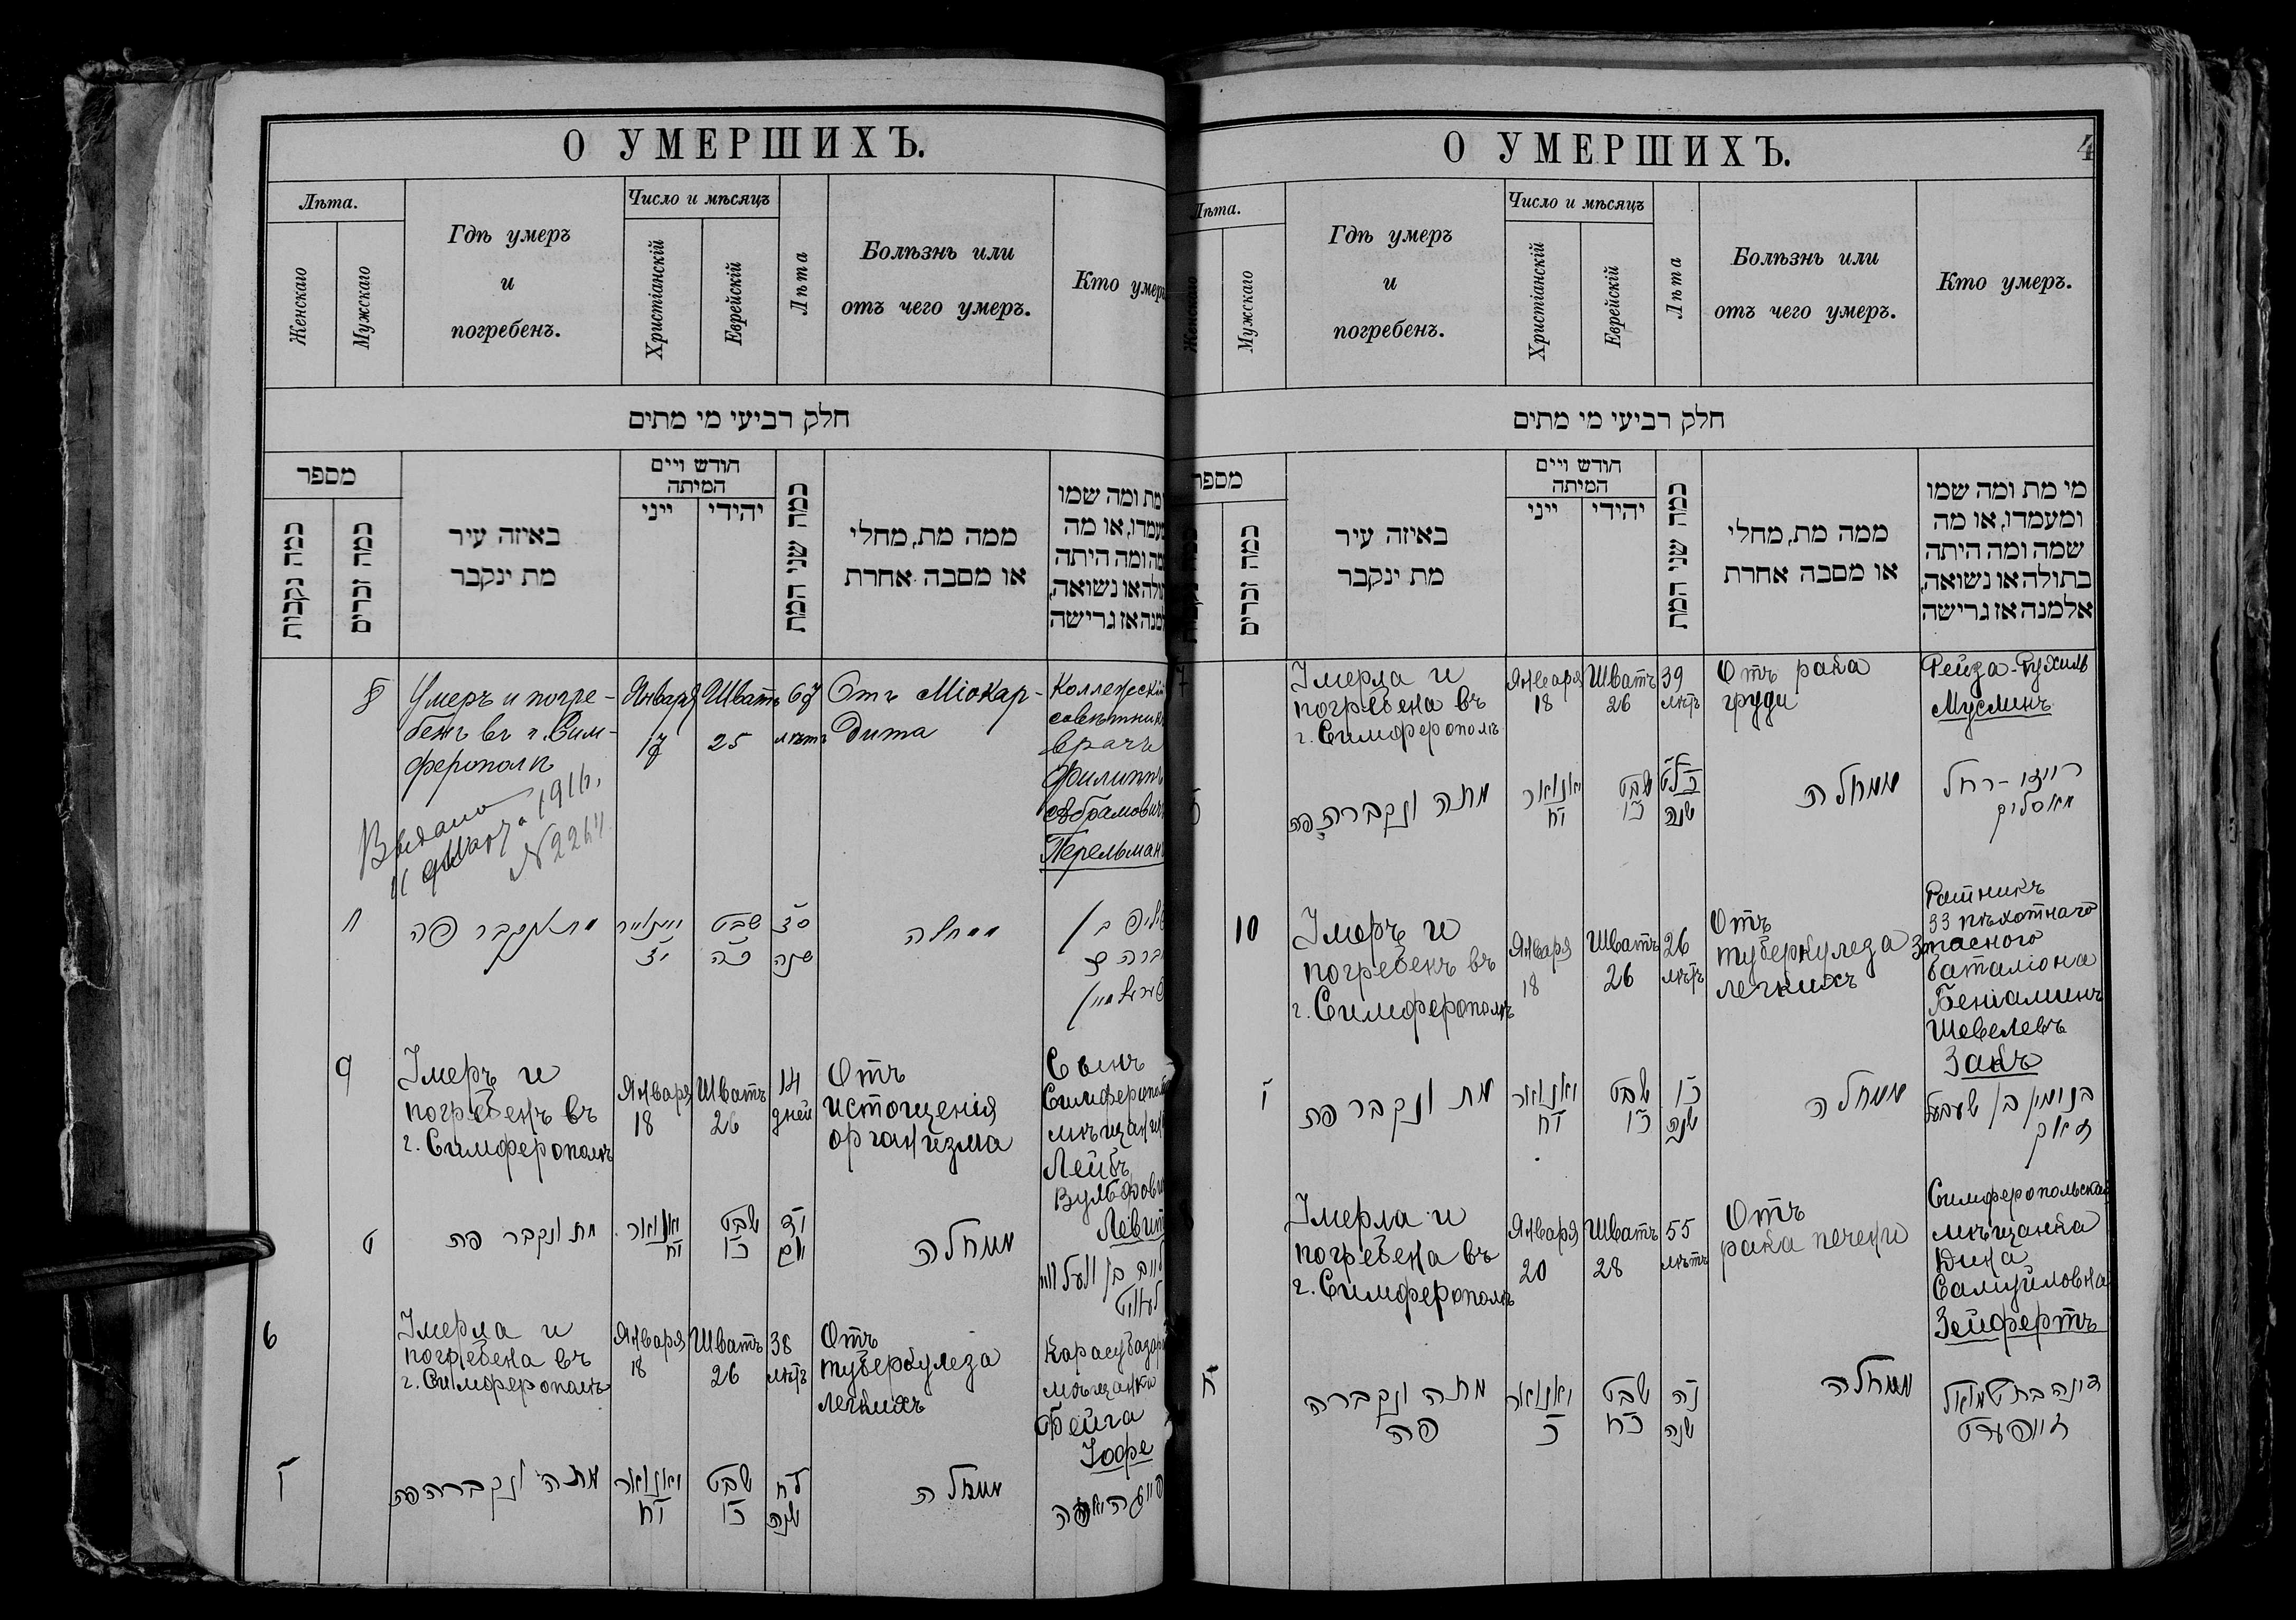 О УМЕРШИХЪ.
Лѣта.
Женскаго
Мужскаго
Гдѣ умеръ
и
погребенъ.
Число и мѣсяцъ
Христіанскій
Еврейскій
Лѣта
Болѣзнь или
отъ чего умеръ.
Кто умеръ
חלק רביעי מי מתים
מספר
כמה נקבות
כמה זכרים
באיזה עיר
מת ינקבר
חודש ויים
המיתה
ייני
יהידי
כמה שני המת
ממה מת, מחלי
או מסבה אחרת
מת ומה שמו
מעמדו, או מה
מה ומה היתה
תולה או נשואה,
למנה אז גרישה
8
Умеръ и погре-
бенъ въ г. Сим-
ферополѣ
Января
17
Шватъ
25
67
лѣтъ
Отъ Міокар-
дита
Коллежскій
совѣтникъ
врачъ
Филиппъ
Абрамовичъ
Перельманъ
Выдано
11 Марта 1911 г.
N 2264
ח
מת ונקבר פה
ינואר
יז
שבט
כה
סז
שנה
ממחלה
פיליפ בן
אברהם
פערעלמאן
9
Умеръ и
погребенъ въ
г. Симферополѣ
Января
18
Шватъ
26
14
дней
Отъ
истощенія
организма
Сынъ
Симферопол
мѣщанин
Лейбъ
Вульфович
Левит
ט
מת ונקבר פה
יאנואר
יח
שבט
כו
יד
יום
ממחלה
לייב בן
לעוויט
6
Умерла и
погребена въ
г. Симферополѣ
Января
18
Шватъ
26
38
лѣтъ
Отъ
туберкулеза
легкихъ
Карасубазар
мѣщанка
Фейга
Іофе
ו
מתה ונקברה פה
יאנואר
יח
שבט
כו
לח
שנה
ממחלה
פייגה יאפה
О УМЕРШИХЪ.
4
Лѣта.
Женскаго
Мужскаго
Гдѣ умеръ
и
погребенъ.
Число и мѣсяцъ
Христіанскій
Еврейскій
Лѣта
Болѣзнь или
отъ чего умеръ.
Кто умеръ.
חלק רביעי מי מתים
מספר
כמה זכרים
באיזה עיר
מת ינקבר
חודש ויים
המיתה
ייני
יהידי
כמה שני המת
ממה מת, מחלי
או מסבה אחרת
מי מת ומה שמו
ומעמדו, או מה
שמה ומה היתה
בתולה או נשואה,
אלמנה אז גרישה
7
Умерла и
погребена въ
г. Симферополѣ
Января
18
Шватъ
26
39
лѣтъ
Отъ рака
груди
Рейза-Рухиль
Муслинъ
ז
מתה ונקברת פה
יאנואר
יח
שבט
כו
לט
שנה
ממחלה
רייזי-רחל
מאסלין
10
Умеръ и
погребенъ въ
г. Симферополѣ
Января
18
Шватъ
26
26
лѣтъ
Отъ
туберкулеза
легкихъ
Ратникъ
33 пѣхотнаго
запасного
баталіона
Беніаминъ
Шевелевъ
Закъ
י
מת ונקבר פה
יאנואר
יח
שבט
כו
כו
שנה
ממחלה
בנימין בן
זאק
Умерла и
погребена въ
г. Симферополѣ
Января
20
Шватъ
28
55
лѣтъ
Отъ
рака печени
Симферопольская
мѣщанка
Дина
Самуйловна
Зейфертъ
ח
מתה ונקברה
פה
יאנואר
כ
שבט
כח
נה
שנה
ממחלה
דינה בת שמואל
זייפערט